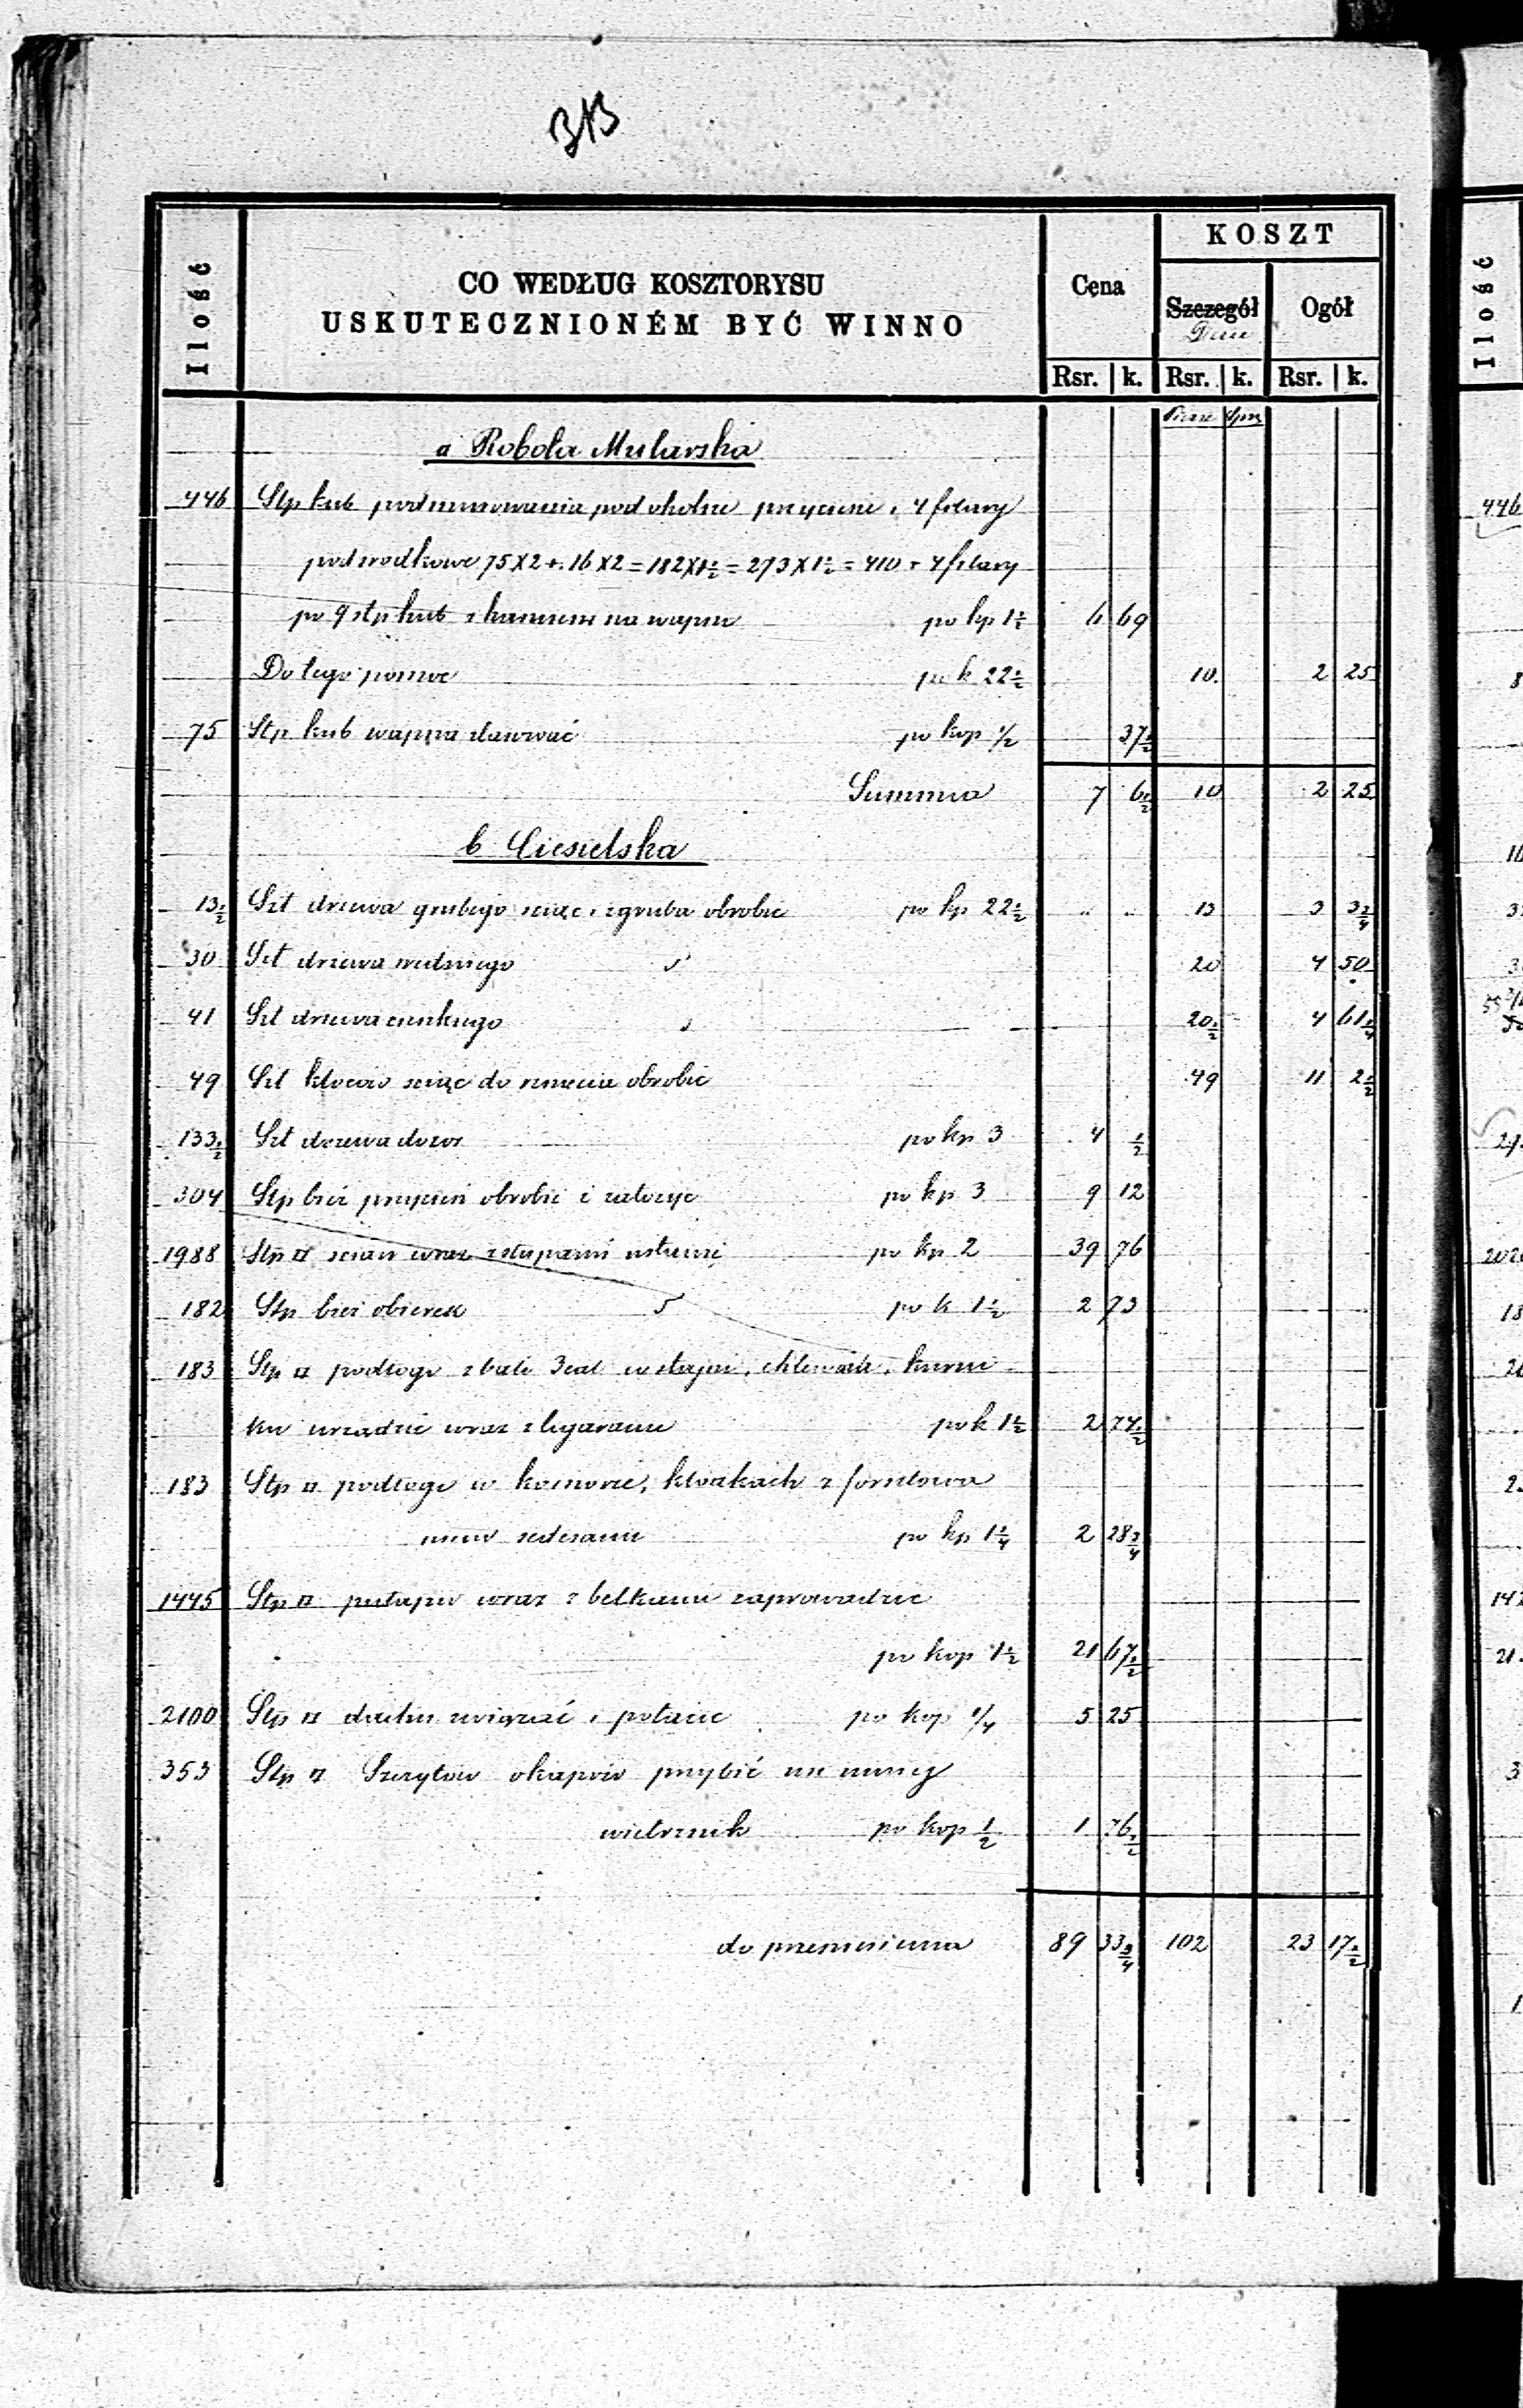 313
Ilość
CO WEDŁUG KOSZTORYSU
USKUTECZNIONÉM BYĆ WINNO
Cęna
KOSZT
Szczegół
Ogół
Rsr. k. Rsr. k. Rsr. k.
a Robota Mularska
446 Stp kub podmurowania pod okolne przyciesie i 4 filary
podśrodkowe 75X2 + 16X2 = 182X1½ = 273X1½ = 410 + 4 filary
po 9 stp kub z kamieni na wapno po kp 1½ 6 69
Do tego pomoc po k 22½ 10 2 25
75 Stp kub wapna po kop ½ 37½
Summa 7 6½ 10 2 25
b Ciesielska
13½ Szt drzewa grubego sciąc i zgruba obrobic po kp 22½ .. .. 13 3 3¾
30 Szt drzewa sredniego 20 4 50
41 Szt drzewa cienkiego 20½ 4 61¼
49 Szt klocow sciąc do rznięcia obrobic 49 11 2½
133½ Szt drzewa dozor po kp 3 4 ½
304 Stp bież przycieś obrobic i założyc po kp 3 9 12
1988 Stp □ scian wraz z słupami po kp 2 39 76
182 Stp bież po k 1½ 2 73
183 Stp □ podłogi z bali 3cal w stajni, chlewach, kurni
ku urządzic wraz z legarami po k 1½ 2 74½
183 Stp □ podłogi w komorze, kloakach z
sedesami po kp 1¼ 2 28¾
1445 Stp □ pułapu wraz z belkami zaprowadzic
po kop 1½ 21 67½
2100 Stp □ dachu związać i połacic po kop ¼ 5 25
353 Stp □ Szczytow okapow przybić
wietrznik po kop ½ 1 76½
do przeniesienia 89 33¾ 102 23 17½
Ilość
446